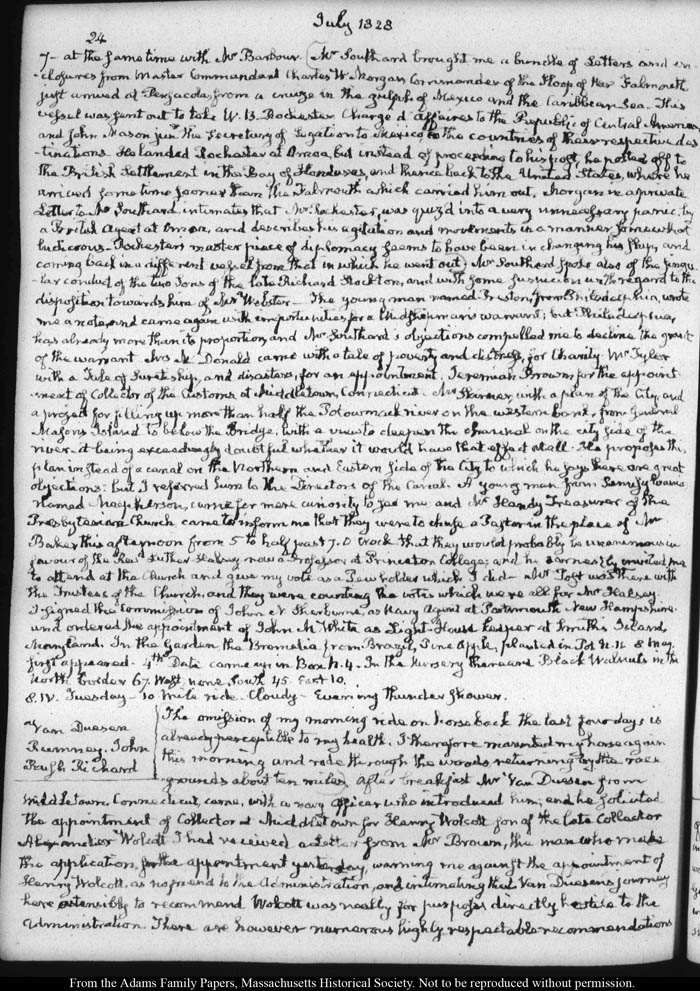 July 1828
24
7— at the same time with Mr Barbour. Mr Southard brought me a bundle of Letters and en-
-closures from Master Commandant Charles W. Morgan Commander of the Sloop of War Falmouth
just arrived at Pensacola, from a cruize in the gulph of Mexico and the Caribbean Sea. This
vessel was sent out to take W. B. Rochester Chargé d'Affaires to the Republic of Central America
and John Mason junr. the Secretary of Legation to Mexico to the countries of their respective des
-tinations. He landed Rochester at Omoa, but instead of proceeding to his post, he posted off to
the British Settlement in the Bay of Honduras, and thence back to the United States, where he
arrived some time sooner than the Falmouth which carried him out. Morgan in a private
Letter to Mr Southard, intimates that Mr Rochester, was quiz'd into a very unnecessary panic, by
a British Agent at Omoa, and describes his agitation and movements in a manner somewhat
ludicrous. Rochester's master piece of diplomacy seems to have been in changing his ship, and
coming back in a different vessel from that in which he went out. Mr Southard spoke also of the singu
-lar conduct of the two Sons of the late Richard Stockton, and with some suspicion with regard to the
disposition towards him of Mr Webster— The young man named Preston, from Philadelphia, wrote
me a note, and came again with importunities for a Midshipman's warrant; but Philadelphia,
has already more than its proportion, and Mr Southard's objections compelled me to decline the grant
of the warrant. Mrs McDonald came with a tale of poverty and distress, for Charity. Mr Tyler
with a Tale of Suretyship, and disasters, for an appointment. Jeremiah Brown, for the appoint
-ment of Collector of the Customs at Middletown, Connecticut. Mr Skinner, with a plan of the City, and
a project for filling up more than half the Potowmack river on the western bank, from General
Mason's Island to below the Bridge, with a view to deepen the channel on the city side of the
river. it being exceedingly doubtful whether it would have that effect at all. He proposes this
plan instead of a canal on the Northern and Eastern side of the City to which he says there are great
objections: but I referred him to the Directors of the Canal. A young man from Pennsylvania
named Macpherson, came for mere curiosity to see me and Mr Handy Treasurer of the
Presbyterian Church came to inform me that they were to chuse a Pastor in the place of Mr
Baker this afternoon from 5 to half past 7. O'Clock that they would probably be unanimous in
favour of the Revd. Luther Halsey now a Professor at Princeton College; and he earnestly invited me
to attend at the Church and give my vote as a Pew holder which I did— Mr was there with
the Trustees of the Church, and they were counting the votes which were all for Mr Halsey.
I signed the Commission of John N Sherburne, as Navy Agent at Portsmouth New Hampshire.
and ordered the appointment of John M White as Light House keeper at Smith's Island,
Maryland. In the Garden the Bromelia from Brazil, Pine Apple, planted in Pot N. 8 May.
first appeared. 4th Date came up in Box N. 4. In the Nursery there are Black Walnuts in the
North border 67. West, none, South 45 East 10.
8. IV. Tuesday— 10 Mile ride. Cloudy— Evening thunder shower.
Van Duesen
Rumney. John
Rush Richard
The omission of my morning ride on horseback the last four days, is
already perceptible to my health. I therefore mounted my horse again
this morning and rode through the woods returning by the race
grounds about ten miles. After breakfast Mr Van Duesen from
Middletown, Connecticut, came, with a navy officer who introduced him; and he solicited
the appointment of Collector at Middletown for Henry Wolcott son of the late Collector
Alexander Wolcott. I had received a Letter from Mr Brown, the man who made
the application, for the appointment yesterday, warning me against the appointment of
Henry Wolcott, as no friend to the Administration, and intimating that Van Duesen's journey
here ostensibly to recommend Wolcott was really for purposes directly hostile to the
Administration. There are however numerous highly respectable recommendations
From the Adams Family Papers, Massachusetts Historical Society. Not to be reproduced without permission.